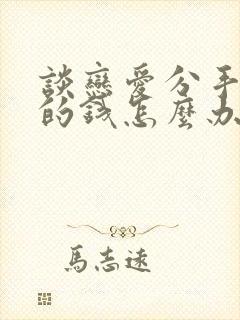 談戀愛分手
的錢怎麼办
馬志遠